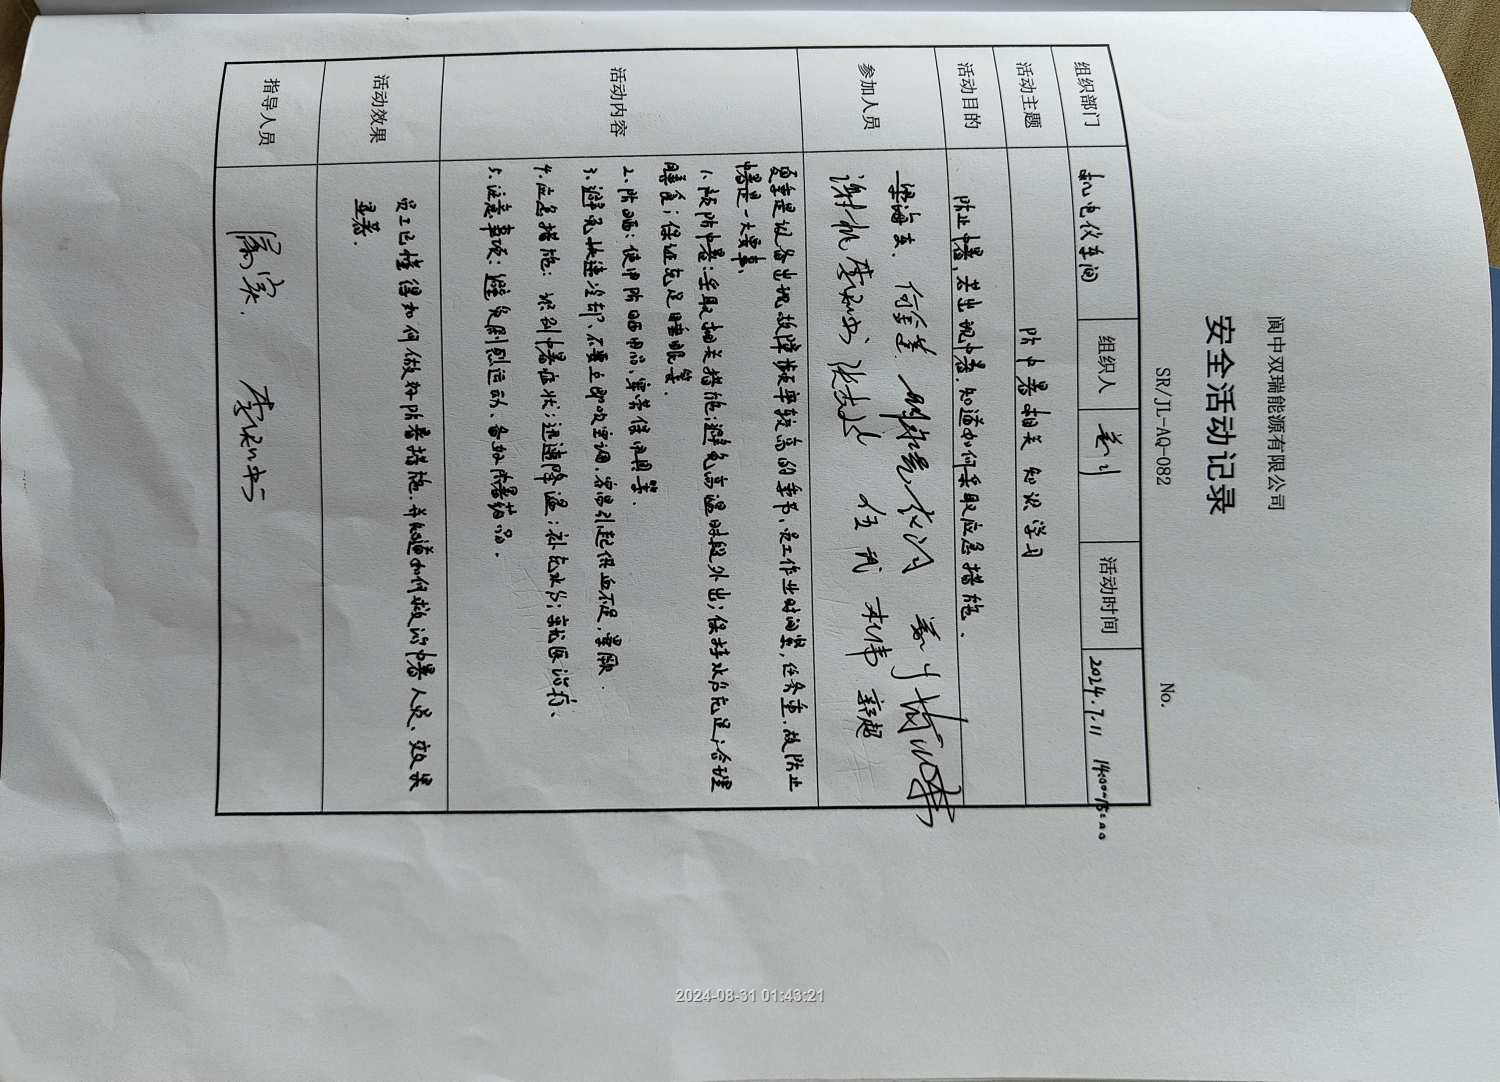 阆中双瑞能源有限公司
安全活动记录
SR/JL-AQ-082 No.
组织部门 机电仪车间 组织人 活动时间 2024.7.11 14:00~15:00
活动主题 防中暑相关知识学习
活动目的 防止中暑,若出现中暑,知道如何采取应急措施.
参加人员 梁海东、
伍武 杜伟
活动内容 夏季是设备出现故障频率较高的季节,员工作业时间紧,任务重.故防止
中暑是一大要事.
1、预防中暑:采取相关措施;避免高温时段外出;保持水分充足;合理
膳食;保证充足睡眠等.
2、防晒:使用防晒用品、穿劳保用具等.
3、避免快速冷却、不要立即吹空调.容易引起供血不足,晕厥.
4、应急措施:识别中暑症状;迅速降温;补充水分;就医治疗、
5、注意事项:避免剧烈运动、备好防暑药品.
活动效果 员工已懂得如何做好防暑措施.并知道如何救治中暑人员、效果
显著.
指导人员
2024-08-31 01:43:21